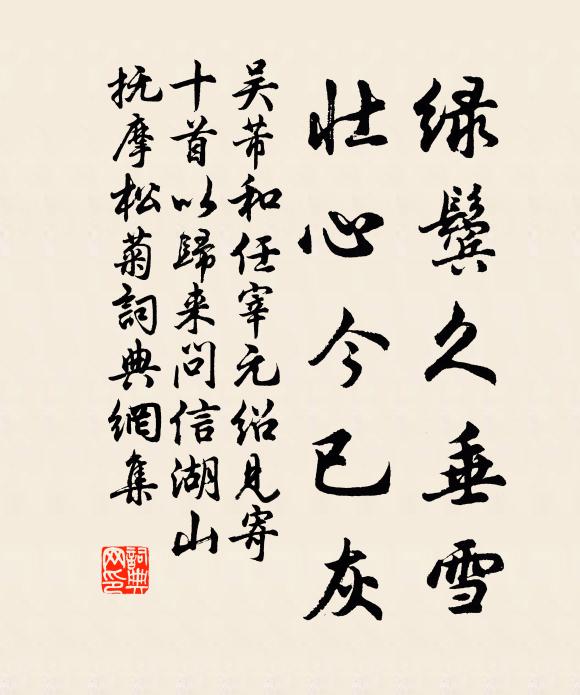 绿鬓久垂雪
壮心今已灰
吴芾和任宰元绍见寄
十首以歸来问信湖山
抚摩松菊詞典網集
詞典
网印